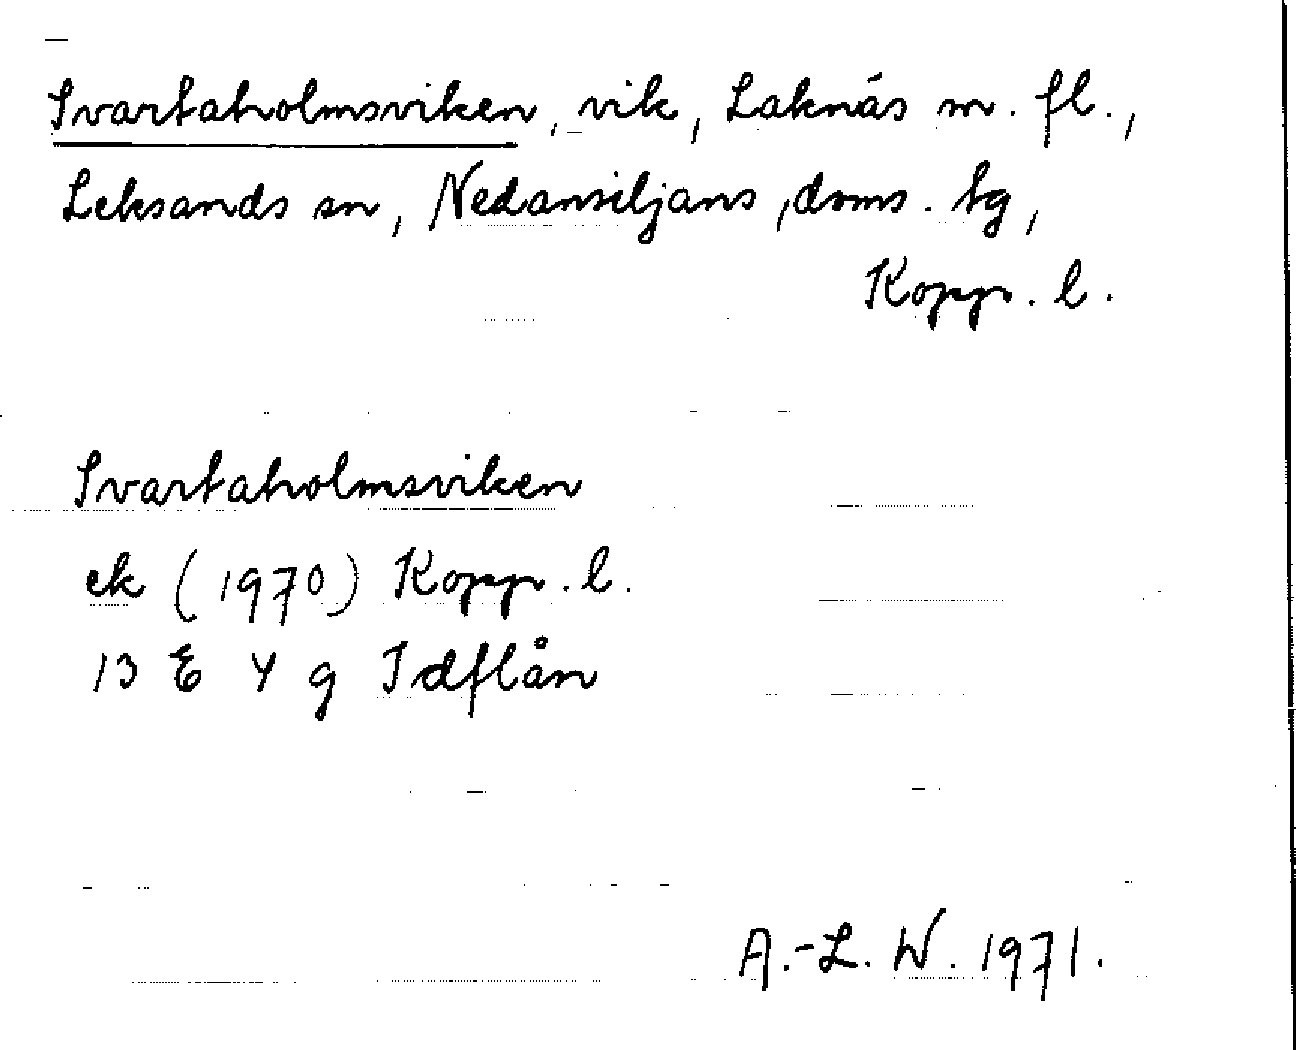 Svartaholmsviken, vik, Laknäs m. fl.,
Leksands sn, Nedansiljans doms. tg,
Kopp. l.
Svartaholmsviken
ek (1970) Kopp. l.
13 E 4 g Idflån
A.-L. W. 1971.